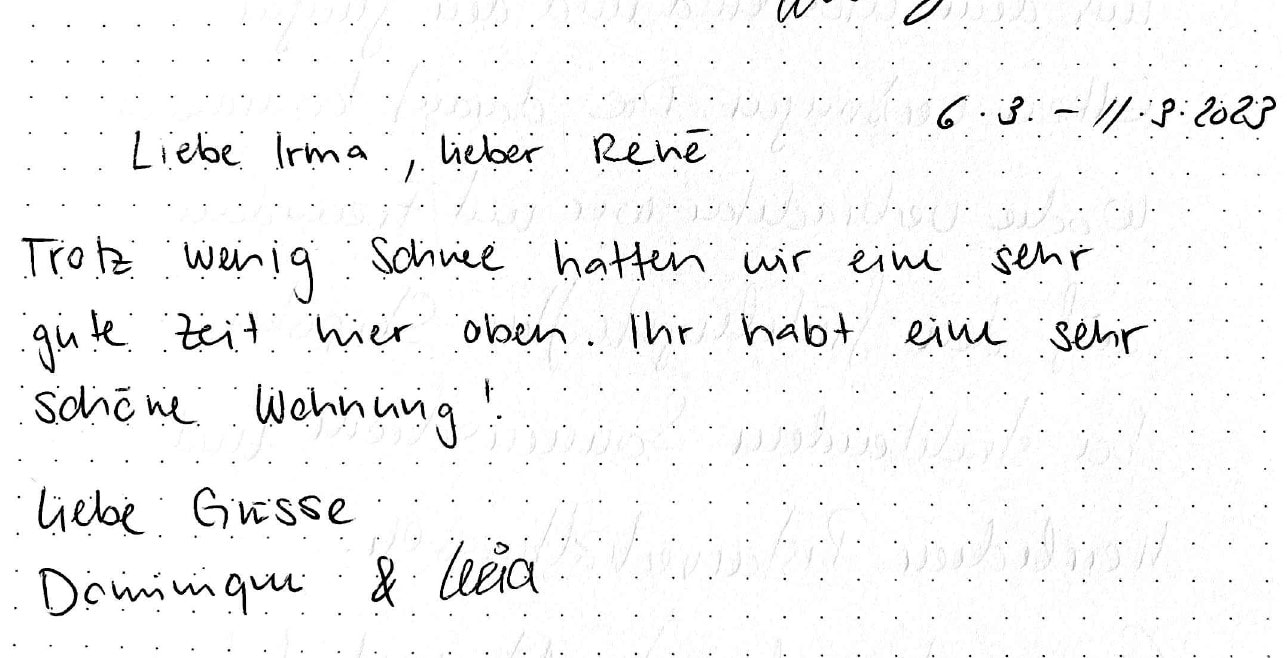 6.3. - 11.3.2023
Liebe Irma, lieber René
Trotz wenig Schnee hatten wir eine sehr
gute Zeit hier oben. Ihr habt eine sehr
schöne Wohnung!
Liebe Grüsse
Dominique &